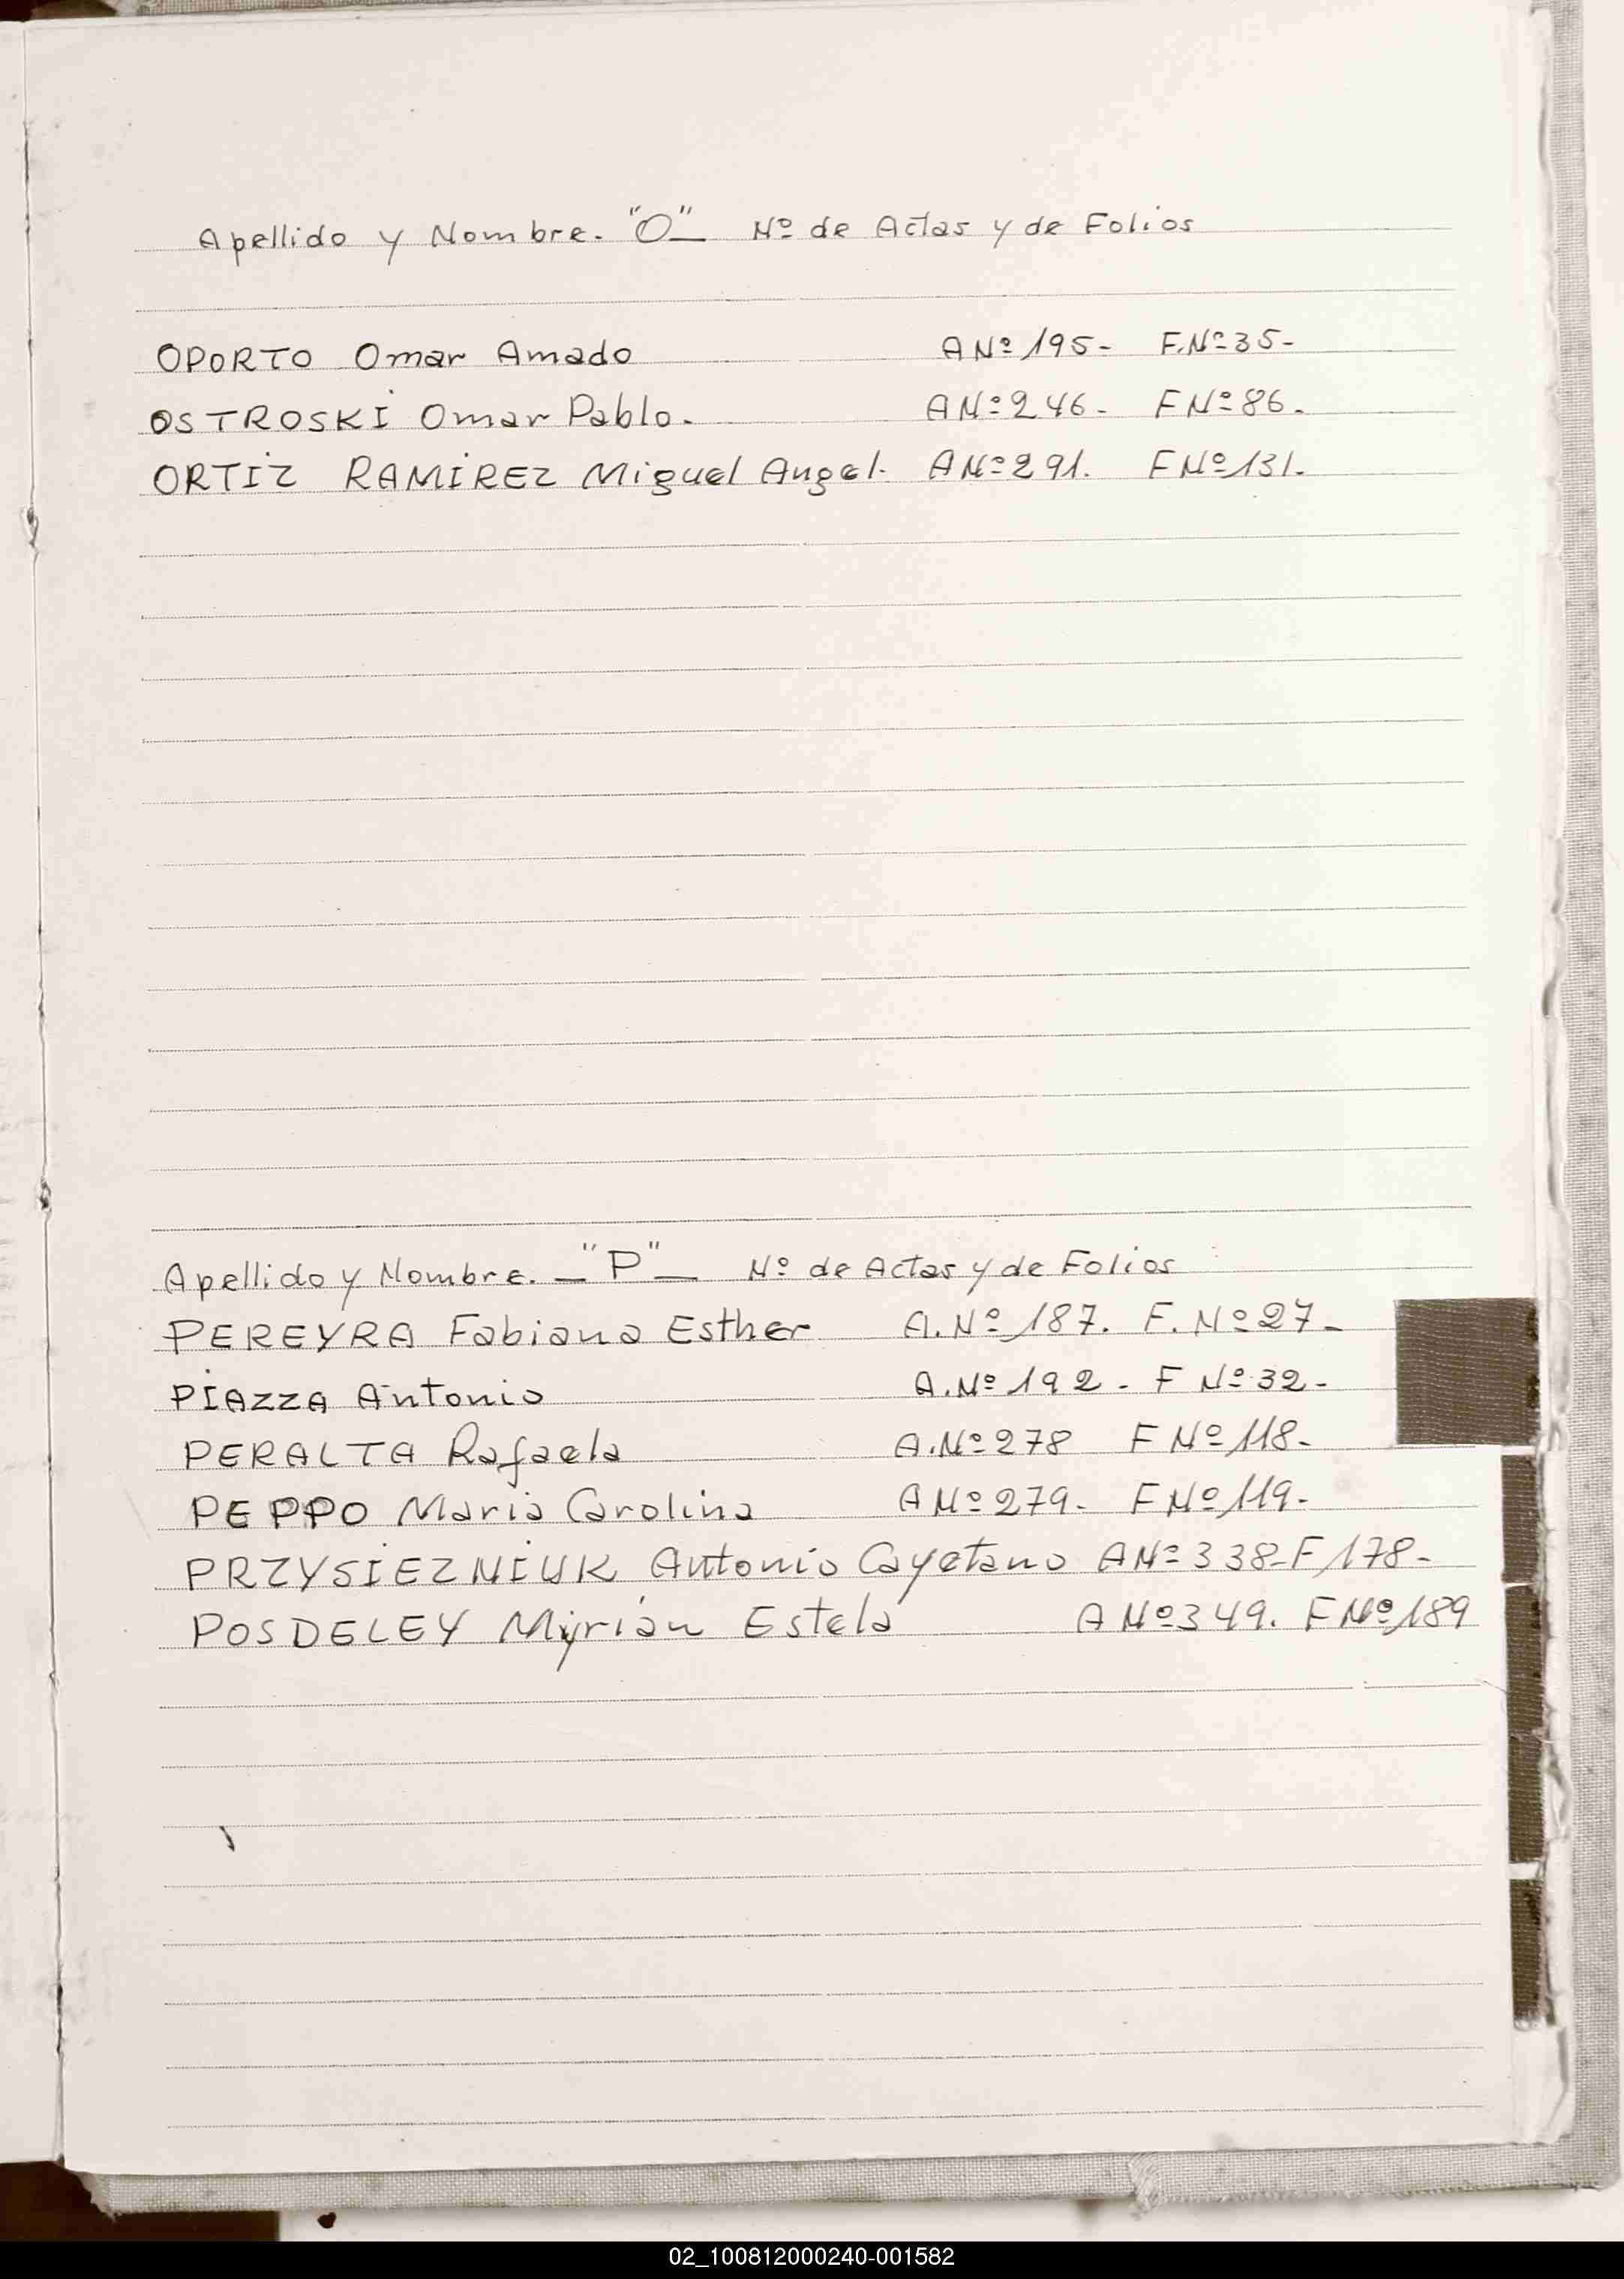 Apellido y Nombre. "O"_ Nº de Actas y de Folios
OPORTO Omar Amado A Nº 195- F.Nº 35-
OSTROSKI Omar Pablo. A Nº 246- F Nº 86.
ORTIZ RAMIREZ Miguel Angel. A Nº 291. F Nº 131.
Apellido y Nombre. _"P"_ Nº de Actas y de Folios
PEREYRA Fabiana Esther A. Nº 187. F. Nº 27-
PIAZZA Antonio A. Nº 192. F Nº 32-
PERALTA Rafaela A. Nº 278 F Nº 118-
PEPPO Maria Carolina A Nº 279- F Nº 119-
PRZYSIEZNIUK Antonio Cayetano A Nº 338-F 178-
POSDELEY Myrian Estela A Nº 349. F Nº 189
02_100812000240-001582